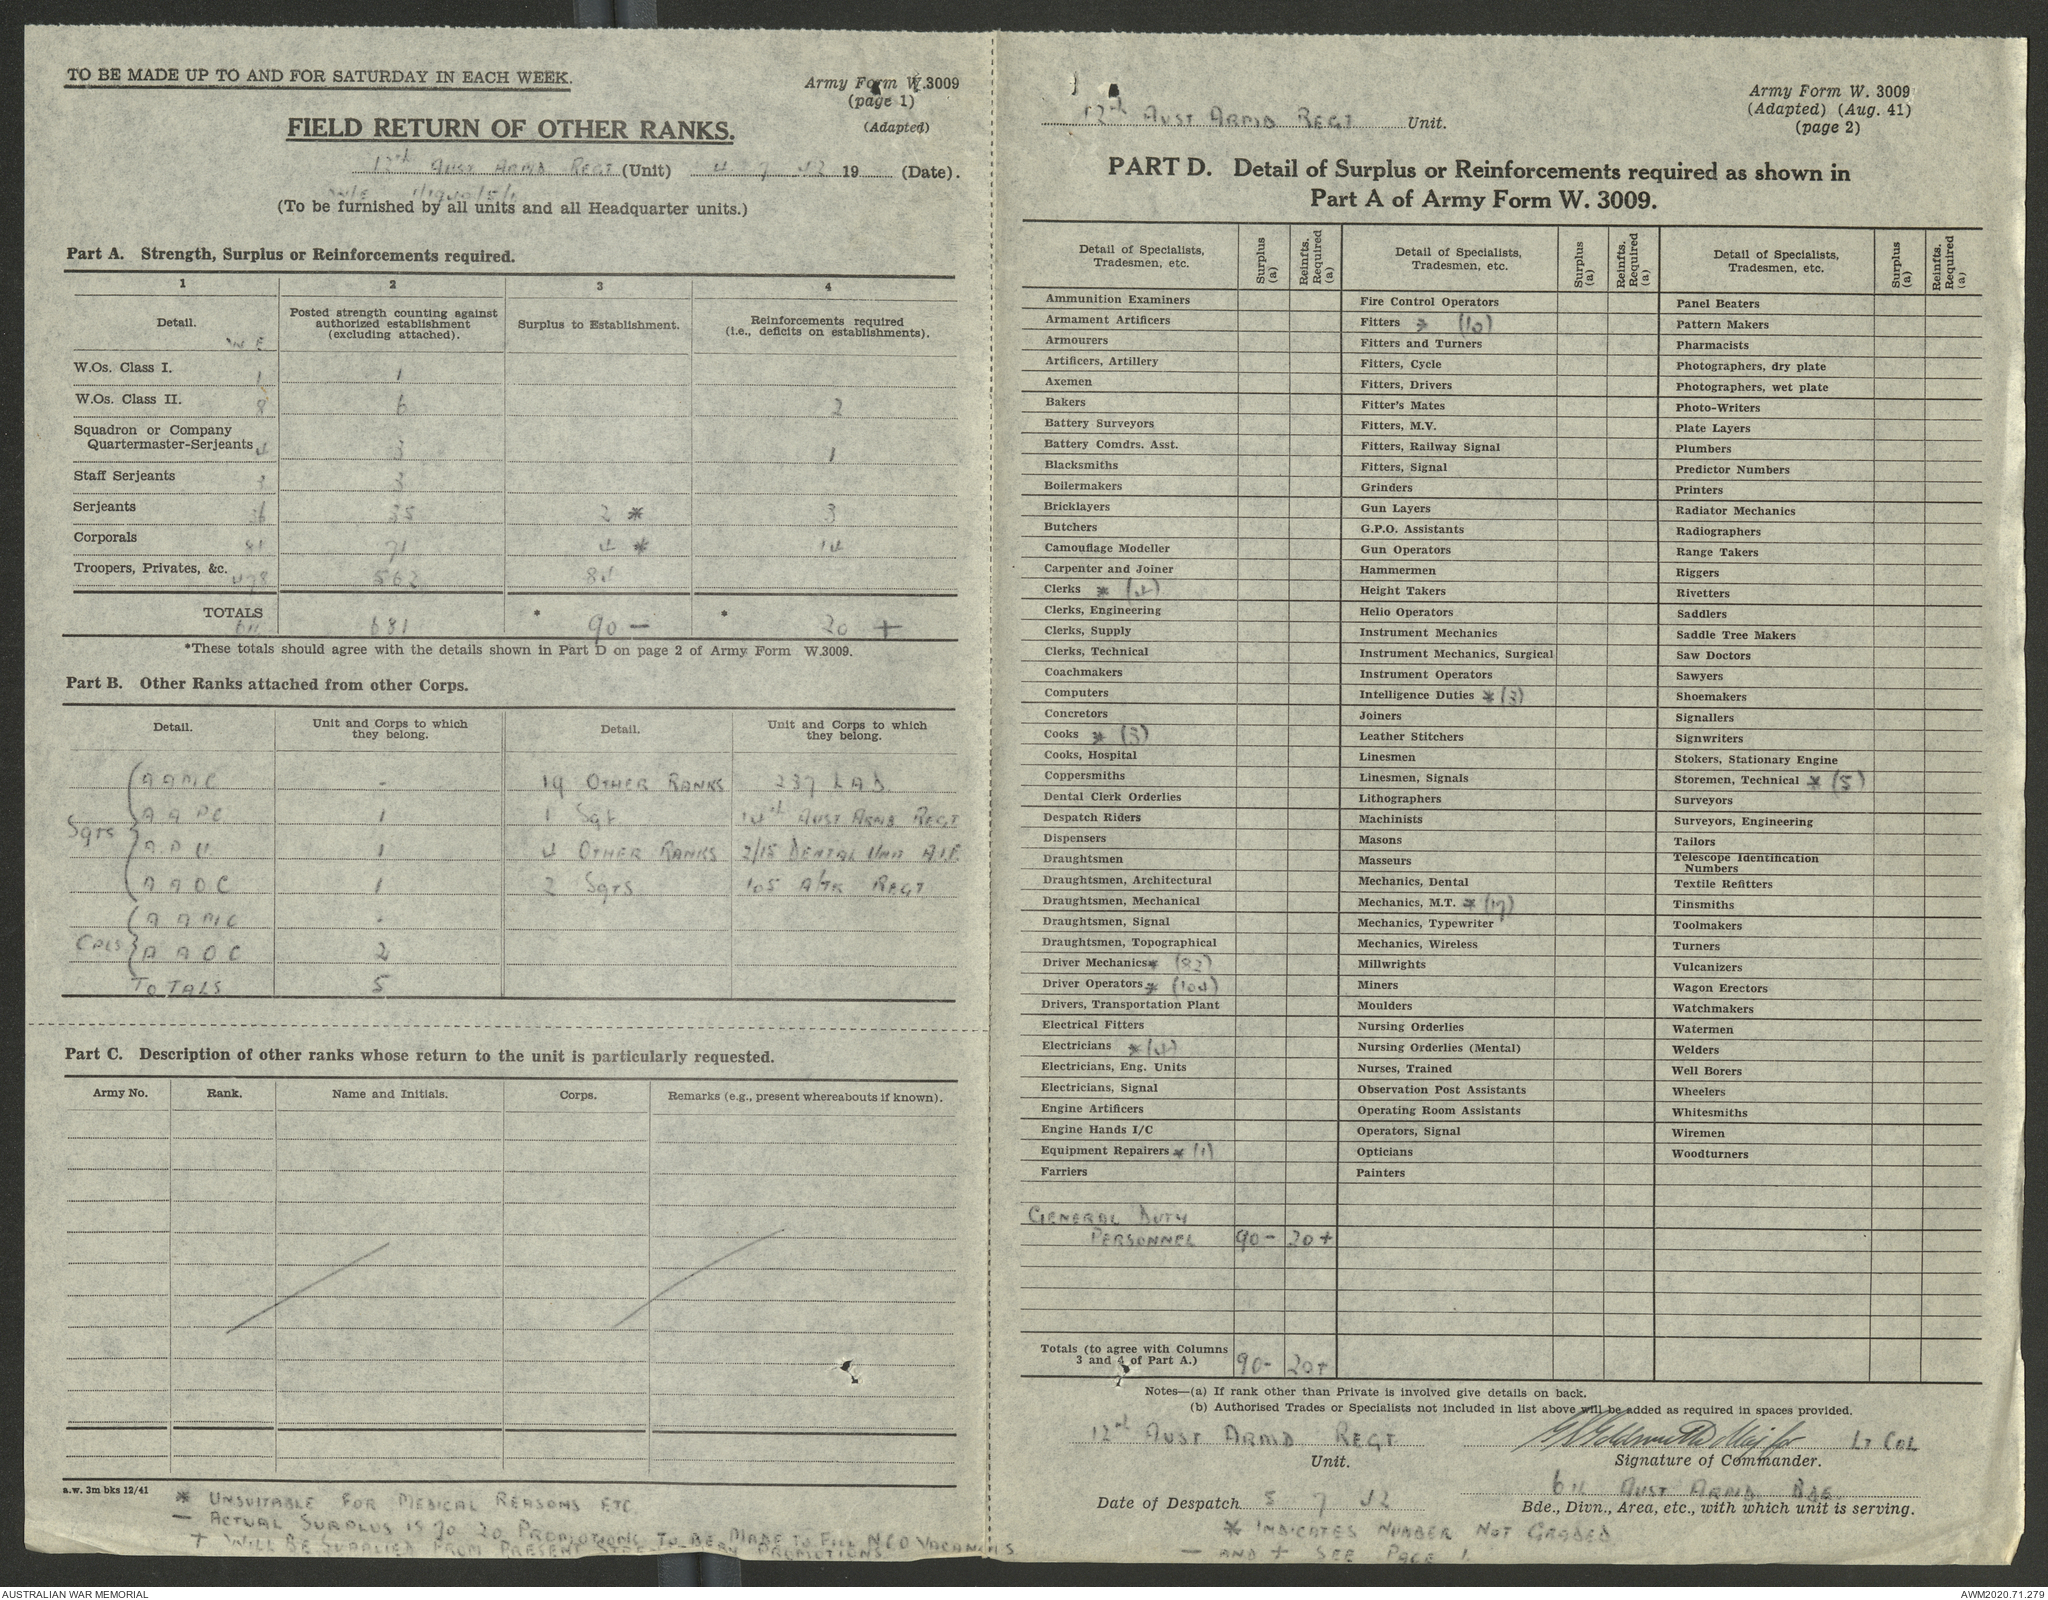 TO BE MADE UP TO AND FOR SATURDAY IN EACH WEEK.
Army Form W.3009
(page 1)
(Adapted)
FIELD RETURN OF OTHER RANKS.
12th AUST ARMD REGT (Unit) 4 7 42 19 (Date).
W/E
(To be furnished by all units and all Headquarter units.)
Part A. Strength, Surplus or Reinforcements required.
1 2 3 4
Detail. Posted strength counting against authorized establishment (excluding attached). Surplus to Establishment. Reinforcements required (i.e., deficits on establishments).
W E
W.Os. Class I. 1 1
W.Os. Class II. 8 6 2
Squadron or Company
Quartermaster-Serjeants 4 3 1
Staff Serjeants 3 3
Serjeants 36 35 2 * 3
Corporals 81 71 4 * 14
Troopers, Privates, &c. 478 562 84
TOTALS 611 681 * 90 - * 20 +
*These totals should agree with the details shown in Part D on page 2 of Army Form W.3009.
Part B. Other Ranks attached from other Corps.
Detail. Unit and Corps to which they belong. Detail. Unit and Corps to which they belong.
A A M C - 19 OTHER RANKS 237 LAD
A A P C 1 1 Sgt 14th AUST ARMD REGT
Sgts
A.D.C. 1 4 OTHER RANKS 2/15 DENTAL UNIT A.I.F.
A A O C 1 2 Sgts 105 A/TK REGT
A A M C -
CPLS A A O C 2
TOTALS 5
Part C. Description of other ranks whose return to the unit is particularly requested.
Army No. Rank. Name and Initials. Corps. Remarks (e.g., present whereabouts if known).
a.w. 3m bks 12/41
* UNSUITABLE FOR MEDICAL REASONS ETC.
- ACTUAL SURPLUS IS 70 20 PROMOTIONS TO BE MADE TO FILL NCO VACANCIES
+ WILL BE SUPPLIED FROM PRESENT BY PROMOTIONS
12th AUST ARMD REGT Unit.
Army Form W. 3009
(Adapted) (Aug. 41)
(page 2)
PART D. Detail of Surplus or Reinforcements required as shown in
Part A of Army Form W. 3009.
Detail of Specialists, Tradesmen, etc. Surplus (a) Reinfts. Required (a) Detail of Specialists, Tradesmen, etc. Surplus (a) Reinfts. Required (a) Detail of Specialists, Tradesmen, etc. Surplus (a) Reinfts. Required (a)
Ammunition Examiners Fire Control Operators Panel Beaters
Armament Artificers Fitters * (10) Pattern Makers
Armourers Fitters and Turners Pharmacists
Artificers, Artillery Fitters, Cycle Photographers, dry plate
Axemen Fitters, Drivers Photographers, wet plate
Bakers Fitter's Mates Photo-Writers
Battery Surveyors Fitters, M.V. Plate Layers
Battery Comdrs. Asst. Fitters, Railway Signal Plumbers
Blacksmiths Fitters, Signal Predictor Numbers
Boilermakers Grinders Printers
Bricklayers Gun Layers Radiator Mechanics
Butchers G.P.O. Assistants Radiographers
Camouflage Modeller Gun Operators Range Takers
Carpenter and Joiner Hammermen Riggers
Clerks * (4) Height Takers Rivetters
Clerks, Engineering Helio Operators Saddlers
Clerks, Supply Instrument Mechanics Saddle Tree Makers
Clerks, Technical Instrument Mechanics, Surgical Saw Doctors
Coachmakers Instrument Operators Sawyers
Computers Intelligence Duties * (3) Shoemakers
Concretors Joiners Signallers
Cooks * (3) Leather Stitchers Signwriters
Cooks, Hospital Linesmen Stokers, Stationary Engine
Coppersmiths Linesmen, Signals Storemen, Technical * (5)
Dental Clerk Orderlies Lithographers Surveyors
Despatch Riders Machinists Surveyors, Engineering
Dispensers Masons Tailors
Draughtsmen Masseurs Telescope Identification Numbers
Draughtsmen, Architectural Mechanics, Dental Textile Refitters
Draughtsmen, Mechanical Mechanics, M.T. * (17) Tinsmiths
Draughtsmen, Signal Mechanics, Typewriter Toolmakers
Draughtsmen, Topographical Mechanics, Wireless Turners
Driver Mechanics * (82) Millwrights Vulcanizers
Driver Operators * (104) Miners Wagon Erectors
Drivers, Transportation Plant Moulders Watchmakers
Electrical Fitters Nursing Orderlies Watermen
Electricians * (4) Nursing Orderlies (Mental) Welders
Electricians, Eng. Units Nurses, Trained Well Borers
Electricians, Signal Observation Post Assistants Wheelers
Engine Artificers Operating Room Assistants Whitesmiths
Engine Hands I/C Operators, Signal Wiremen
Equipment Repairers * (1) Opticians Woodturners
Farriers Painters
GENERAL DUTY
PERSONNEL 90 - 20 +
Totals (to agree with Columns 3 and 4 of Part A.) 90 - 20 +
Notes—(a) If rank other than Private is involved give details on back.
(b) Authorised Trades or Specialists not included in list above will be added as required in spaces provided.
12th AUST ARMD REGT Maj for Lt COL
Unit. Signature of Commander.
6th AUST ARMD BDE
Date of Despatch 5 7 42 Bde., Divn., Area, etc., with which unit is serving.
* INDICATES NUMBER NOT GRADED
- AND + SEE PAGE 1
AUSTRALIAN WAR MEMORIAL AWM2020.71.279